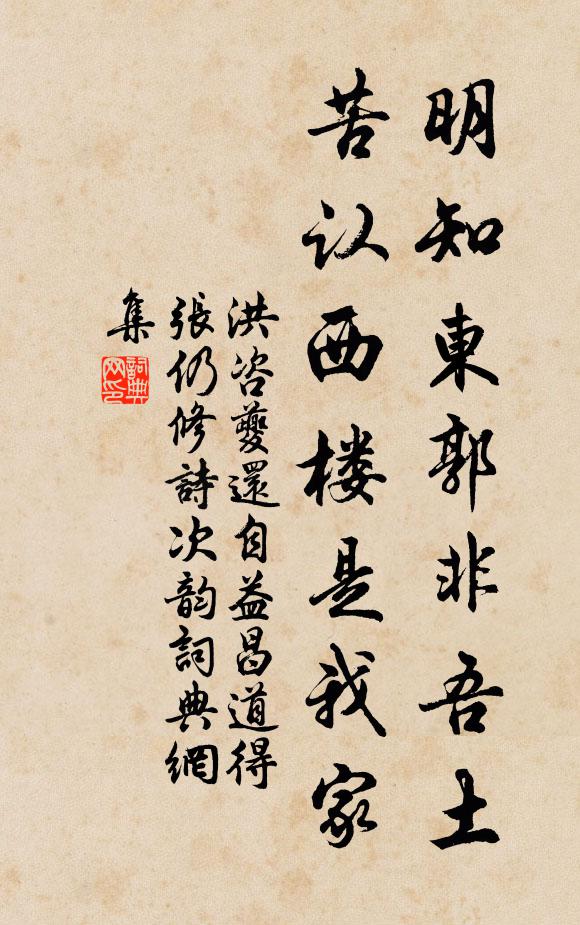 明知東郭非吾土
苦认西楼是我家
洪咨夔還自益昌道得
張仍修詩次韵詞典網
集
詞典网印